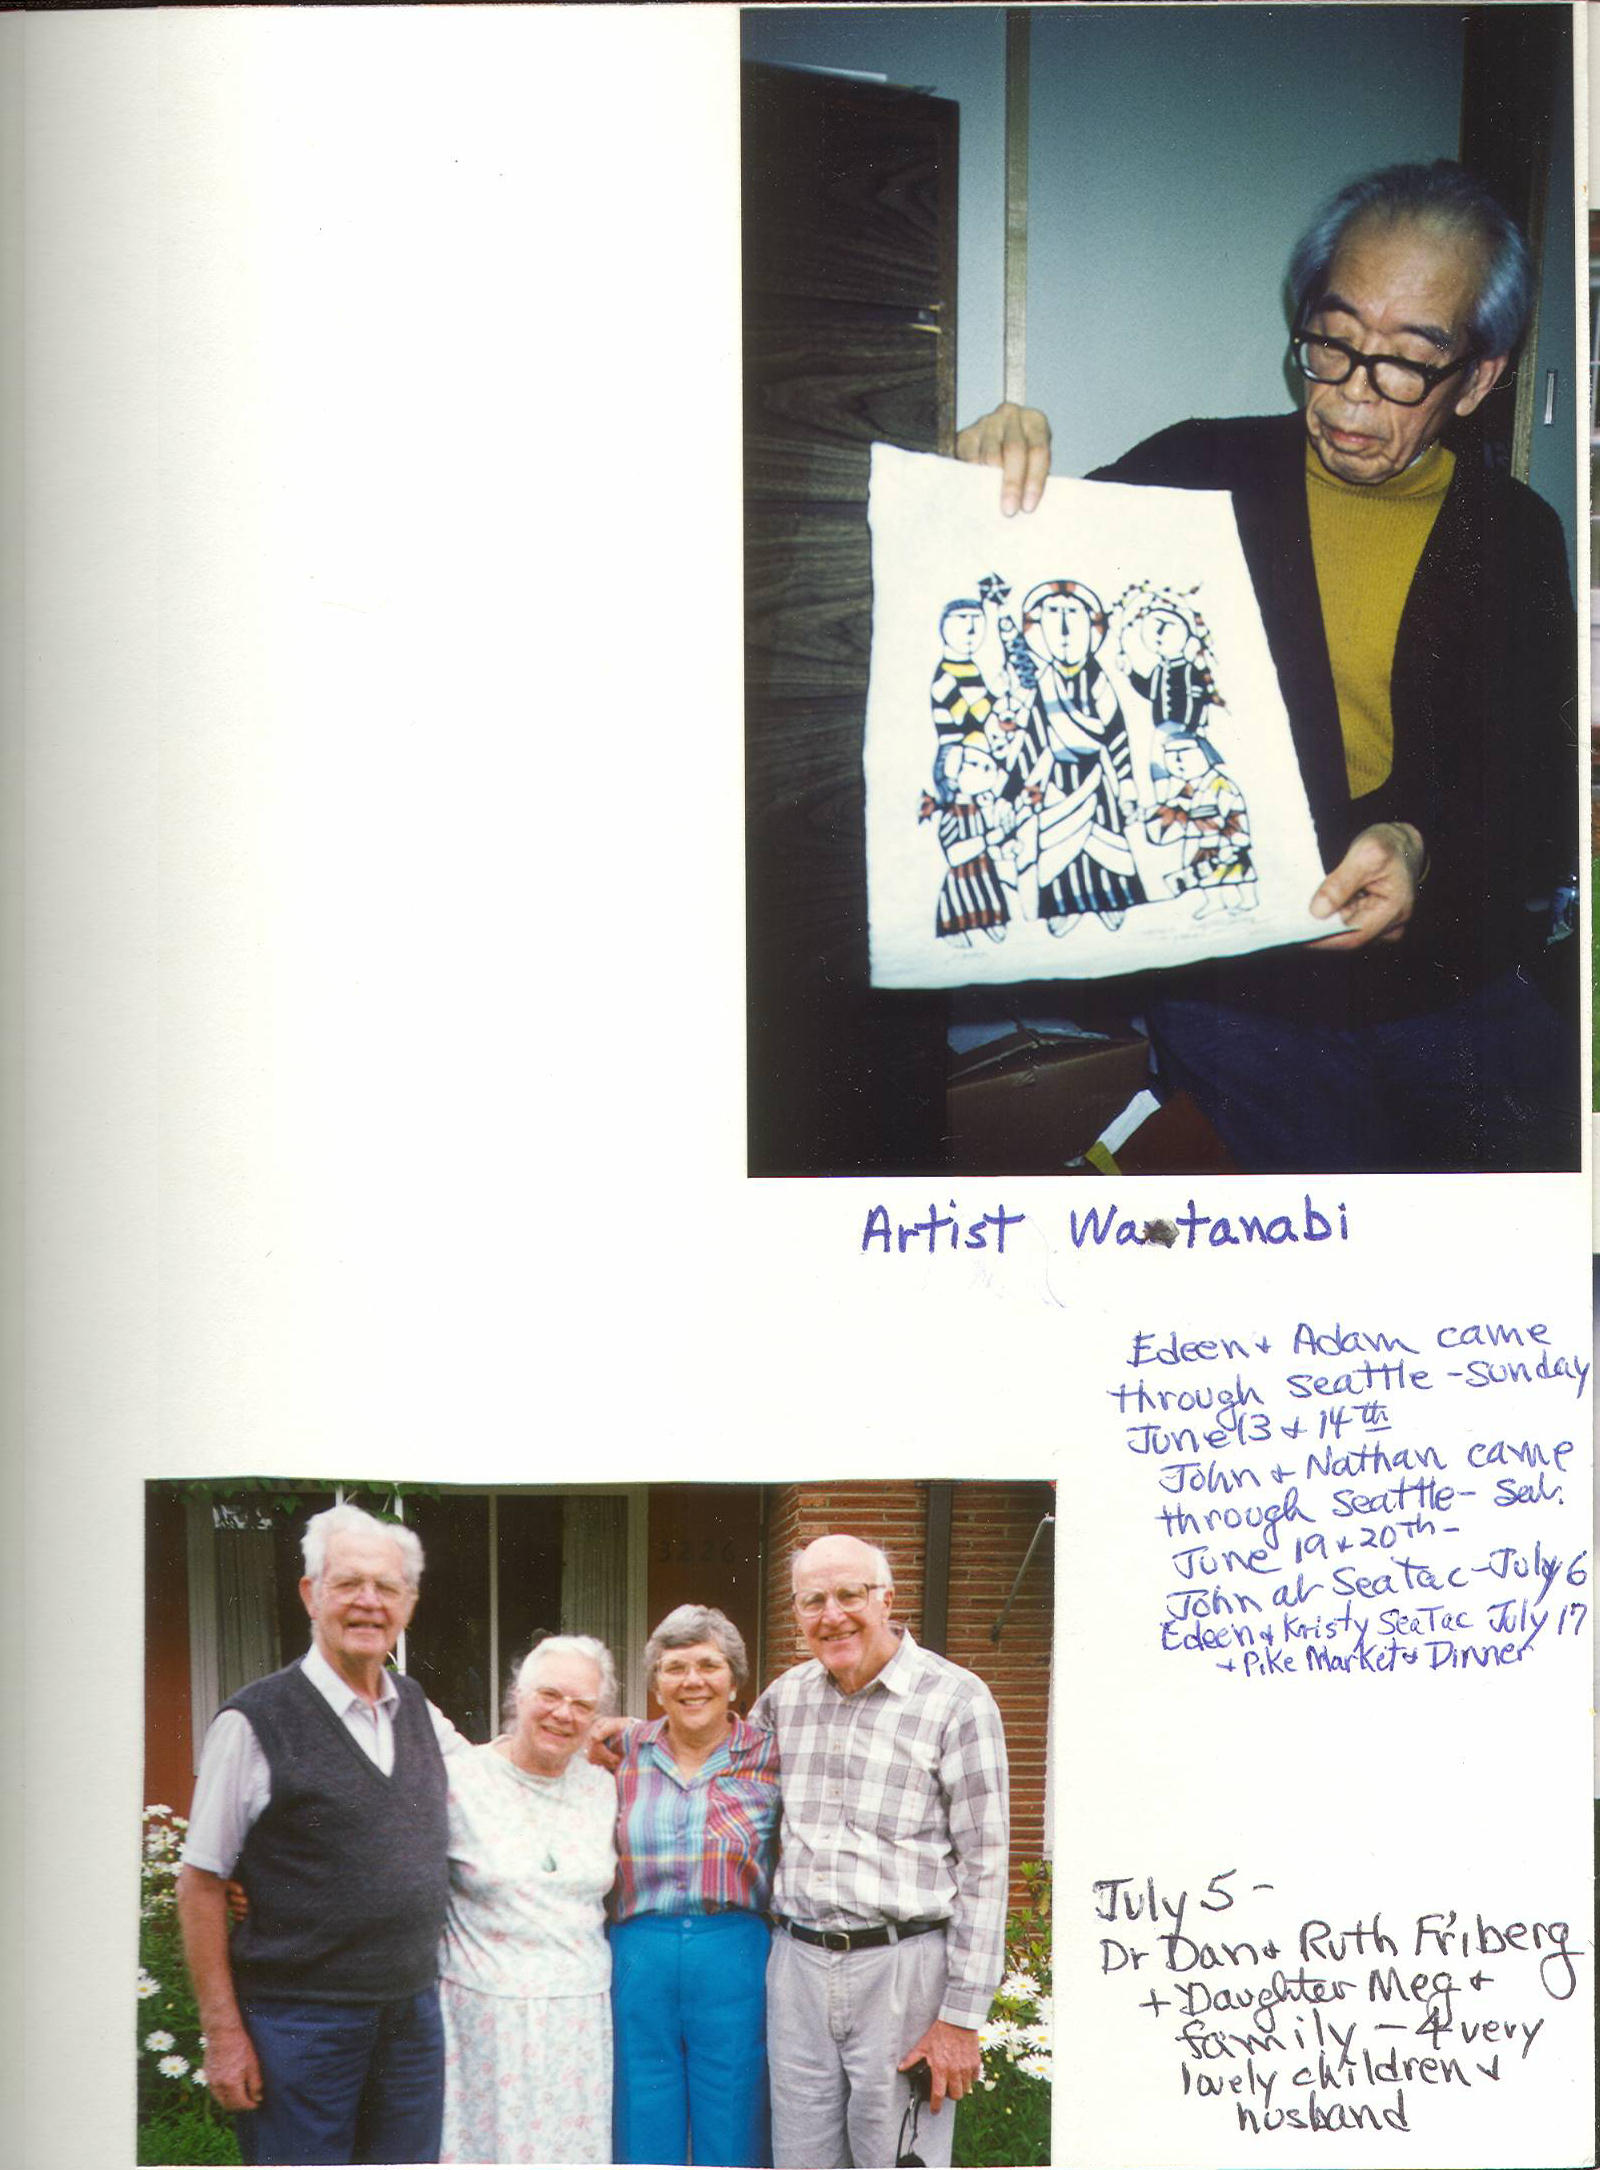 Artist Watanabi
Edeen + Adam came
through Seattle - Sunday
June 13 + 14th
John + Nathan came
through Seattle - Sat.
June 19 + 20th -
John at SeaTac - July 6
Edeen + Kristy SeaTac July 17
+ Pike Market + Dinner
3226
July 5 -
Dr Dan + Ruth Friberg
+ Daughter Meg +
family - 4 very
lovely children +
husband